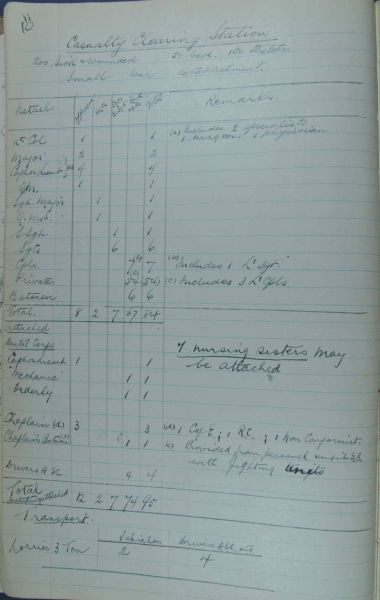 18
Casualty Clearing Station
200 Sick & Wounded 50 beds. 150 Stretcher
Small war establishment.
Details Officers Total Remarks
Lt Col 1 1 (a) Includes 2 specialists
1 surgeon 1 physician
Major 2 2
Capt or Lieut (a) 4 4
Q.M. 1 1
Sgt. Major 1 1
Q.M.S. 1 1
S. Sgt. 1 1
Sgts 6 6
Cpls. 7 (b) 7 (b) Includes 1 L/Sgt.
Privates (c) 54 54 (c) Includes 3 L/Cpls.
Batmen 6 6
Total. 8 2 7 67 84
Attached
Dental Corps. 7 nursing sisters may
Capt or Lieut 1 1 be attached
Mechanic 1 1
Orderly 1 1
Chaplain (d) 3 3 (d) 1 C of E; 1 R.C.; 1 Non Conformist.
Chaplain's Batman (e) 1 1 (e) Provided from personnel
with fighting units
Drivers A.S.C 4 4
Total
attached 12 2 7 74 95
Transport.
Vehicles Drivers A.S.C.
Lorries 3 Ton 2 4